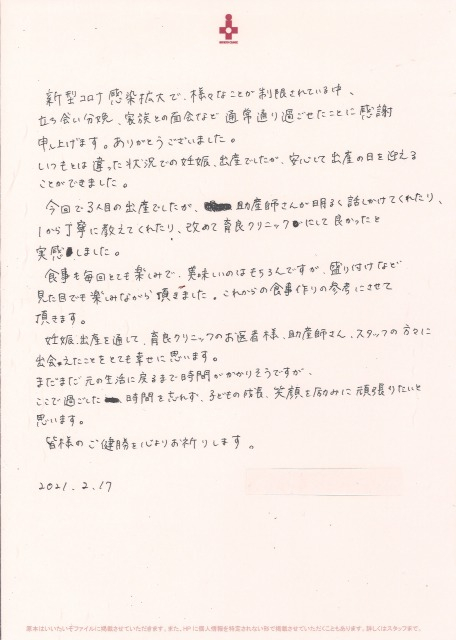 新型コロナ感染拡大で、様々なことが制限されている中、
立ち会い分娩、家族との面会など通常通り過ごせたことに感謝
申し上げます。ありがとうございました。
いつもとは違った状況での妊娠、出産でしたが、安心して出産の日を迎える
ことができました。
今回で3人目の出産でしたが、助産師さんが明るく話しかけてくれたり、
1から丁寧に教えてくれたり、改めて育良クリニックにして良かったと
実感しました。
食事も毎回とても楽しみで、美味しいのはもちろんですが、盛り付けなど
見た目でも楽しみながら頂きました。これからの食事作りの参考にさせて
頂きます。
妊娠、出産を通して、育良クリニックのお医者様、助産師さん、スタッフの方々に
出会えたことをとても幸せに思います。
まだまだ元の生活に戻るまで時間がかかりそうですが、
ここで過ごした時間を忘れず、子どもの成長、笑顔を励みに頑張りたいと
思います。
皆様のご健勝を心よりお祈りします。
2021.2.17
原本はいいたいぞファイルに掲載させていただきます。また、HPに個人情報を特定されない形で掲載させていただくこともあります。詳しくはスタッフまで。